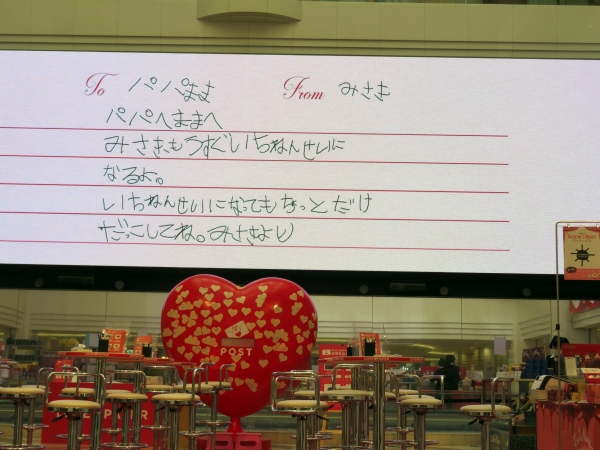 To パパまま From みさき
パパへままへ
みさきもうすぐいちねんせいに
なるよ。
いちねんせいになってもちょっとだけ
だっこしてね。みさきより
POST